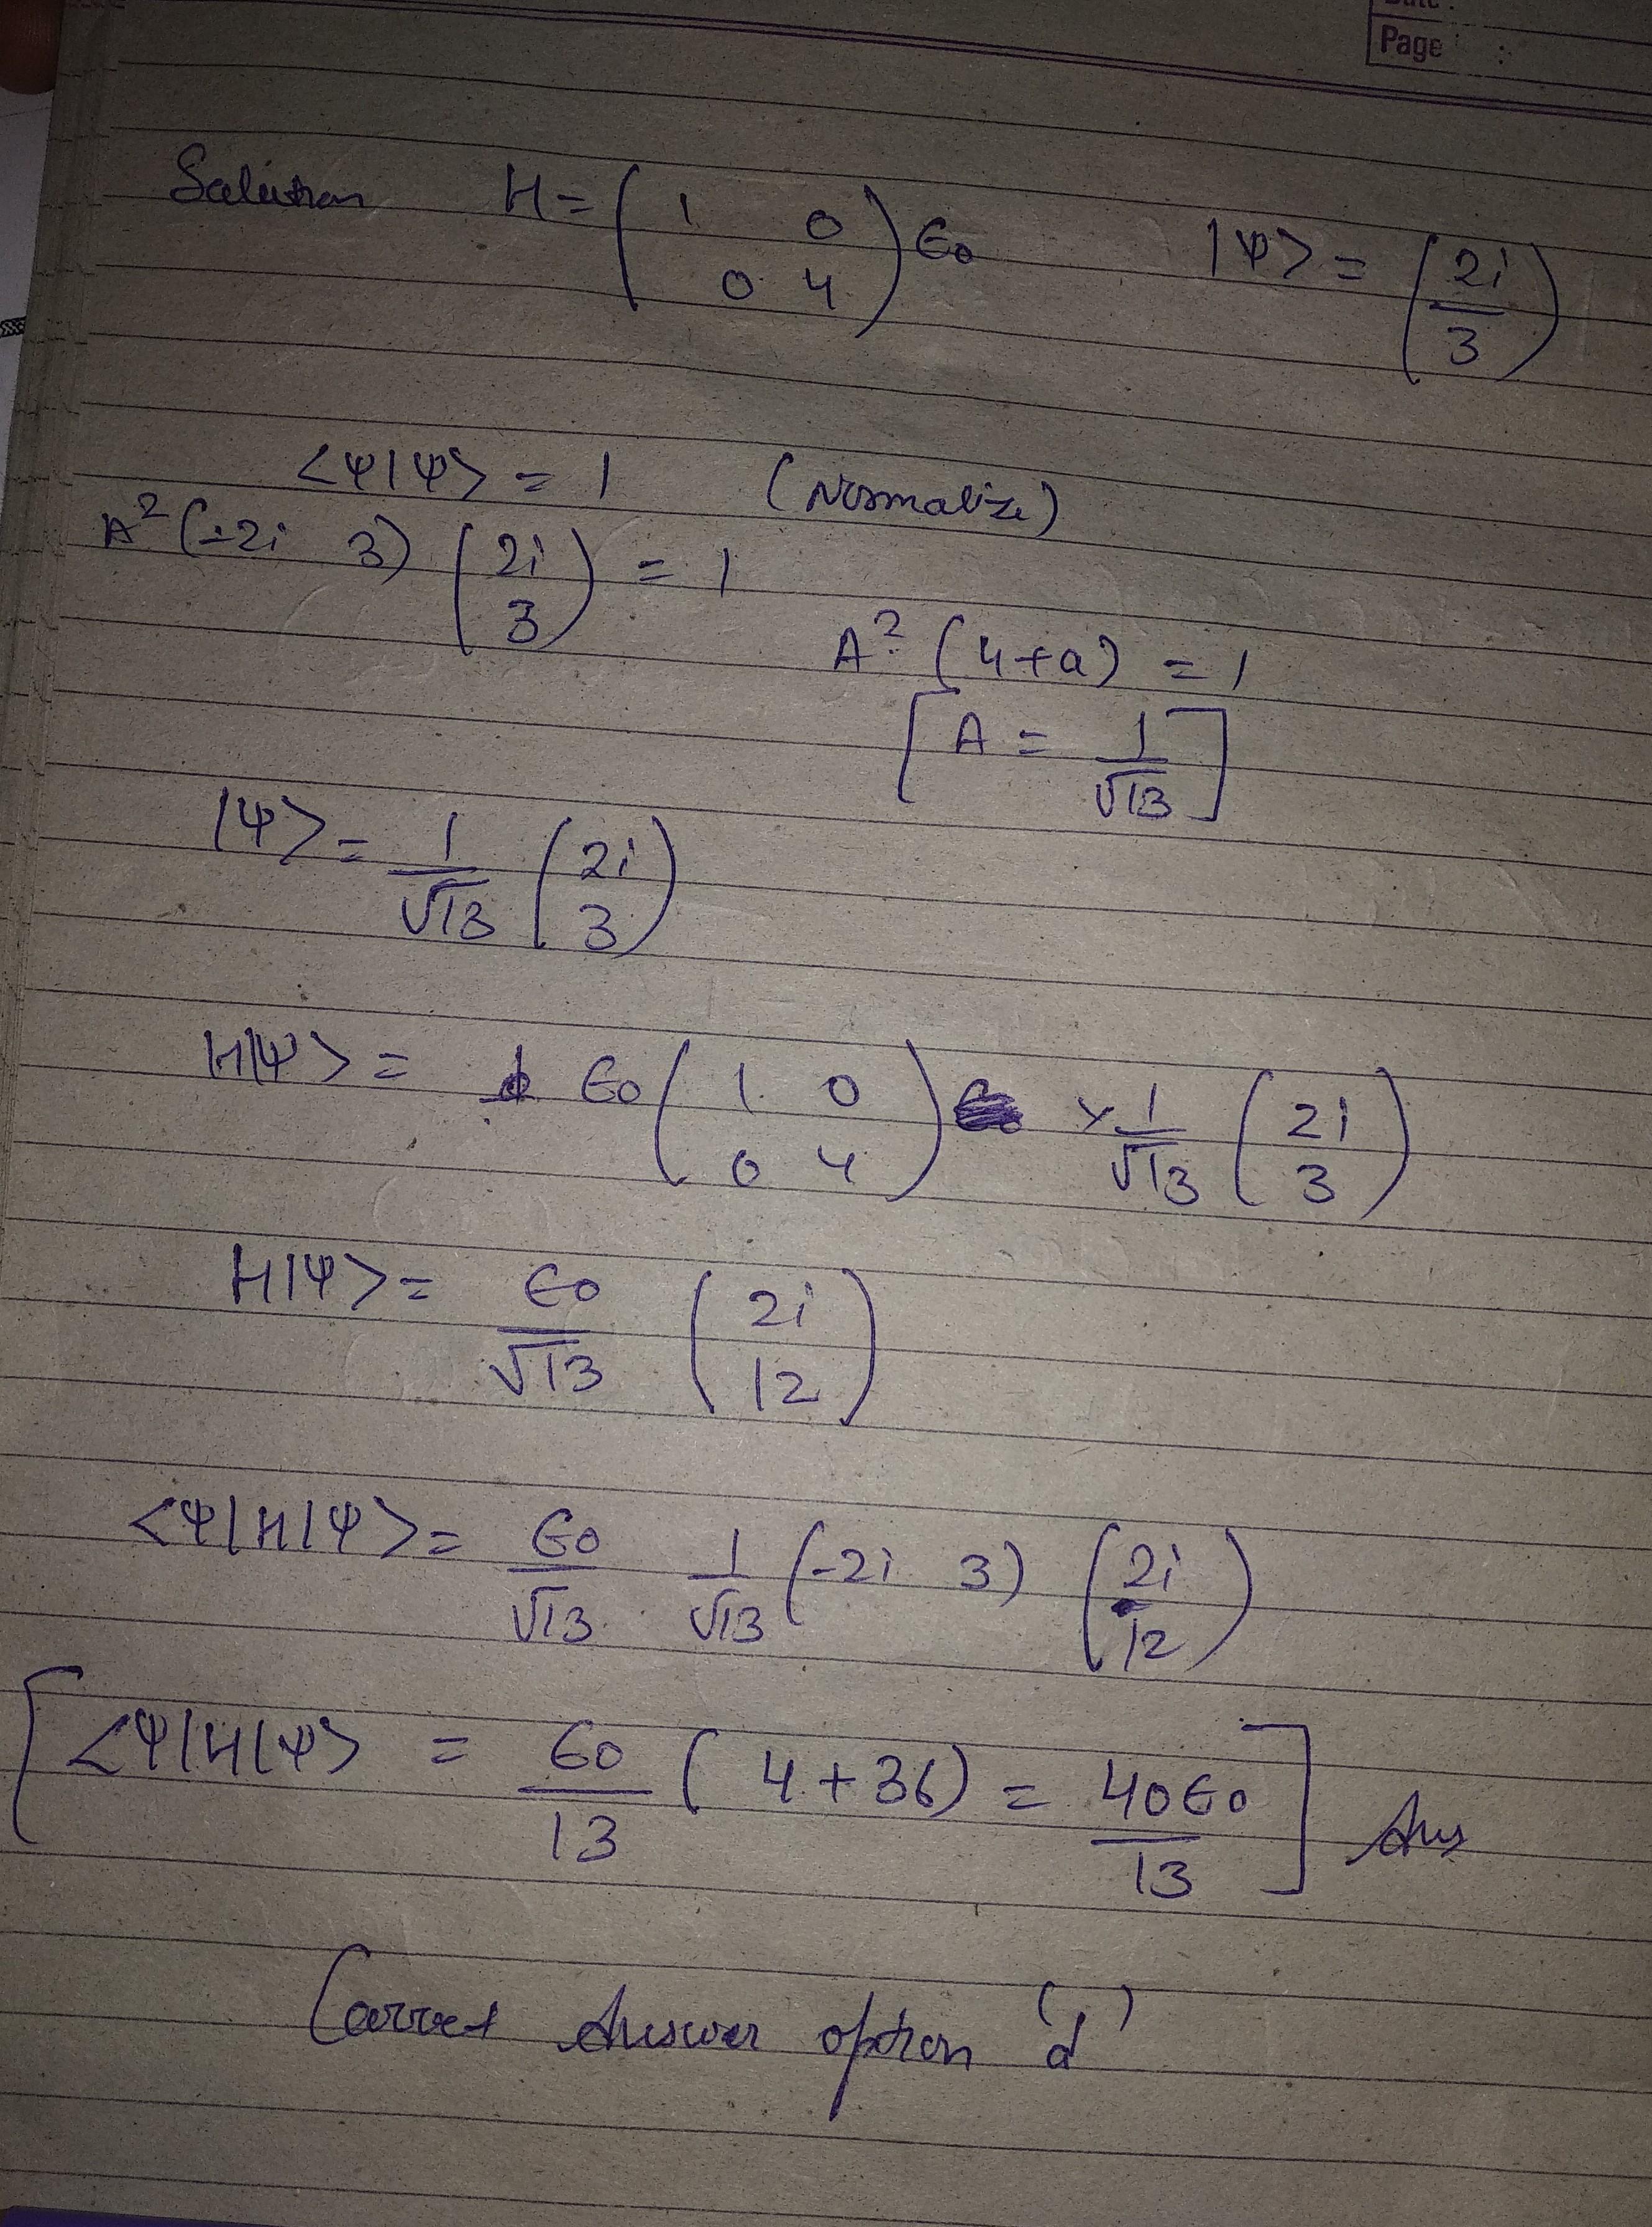 Page :
Solution H = ( 1 0 0 4 ) ϵ0 |Ψ> = ( 2i 3 )
<Ψ|Ψ> = 1 (Normalize)
A² (-2i 3) ( 2i 3 ) = 1
A² (4+9) = 1
[ A = 1/√13 ]
|Ψ> = 1/√13 ( 2i 3 )
H|Ψ> = ϵ0 ( 1 0 0 4 ) × 1/√13 ( 2i 3 )
H|Ψ> = ϵ0/√13 ( 2i 12 )
<Ψ|H|Ψ> = ϵ0/√13 1/√13 (-2i 3) ( 2i 12 )
[ <Ψ|H|Ψ> = ϵ0/13 ( 4+36) = 40ϵ0/13 ] Ans
Correct Answer option 'd'